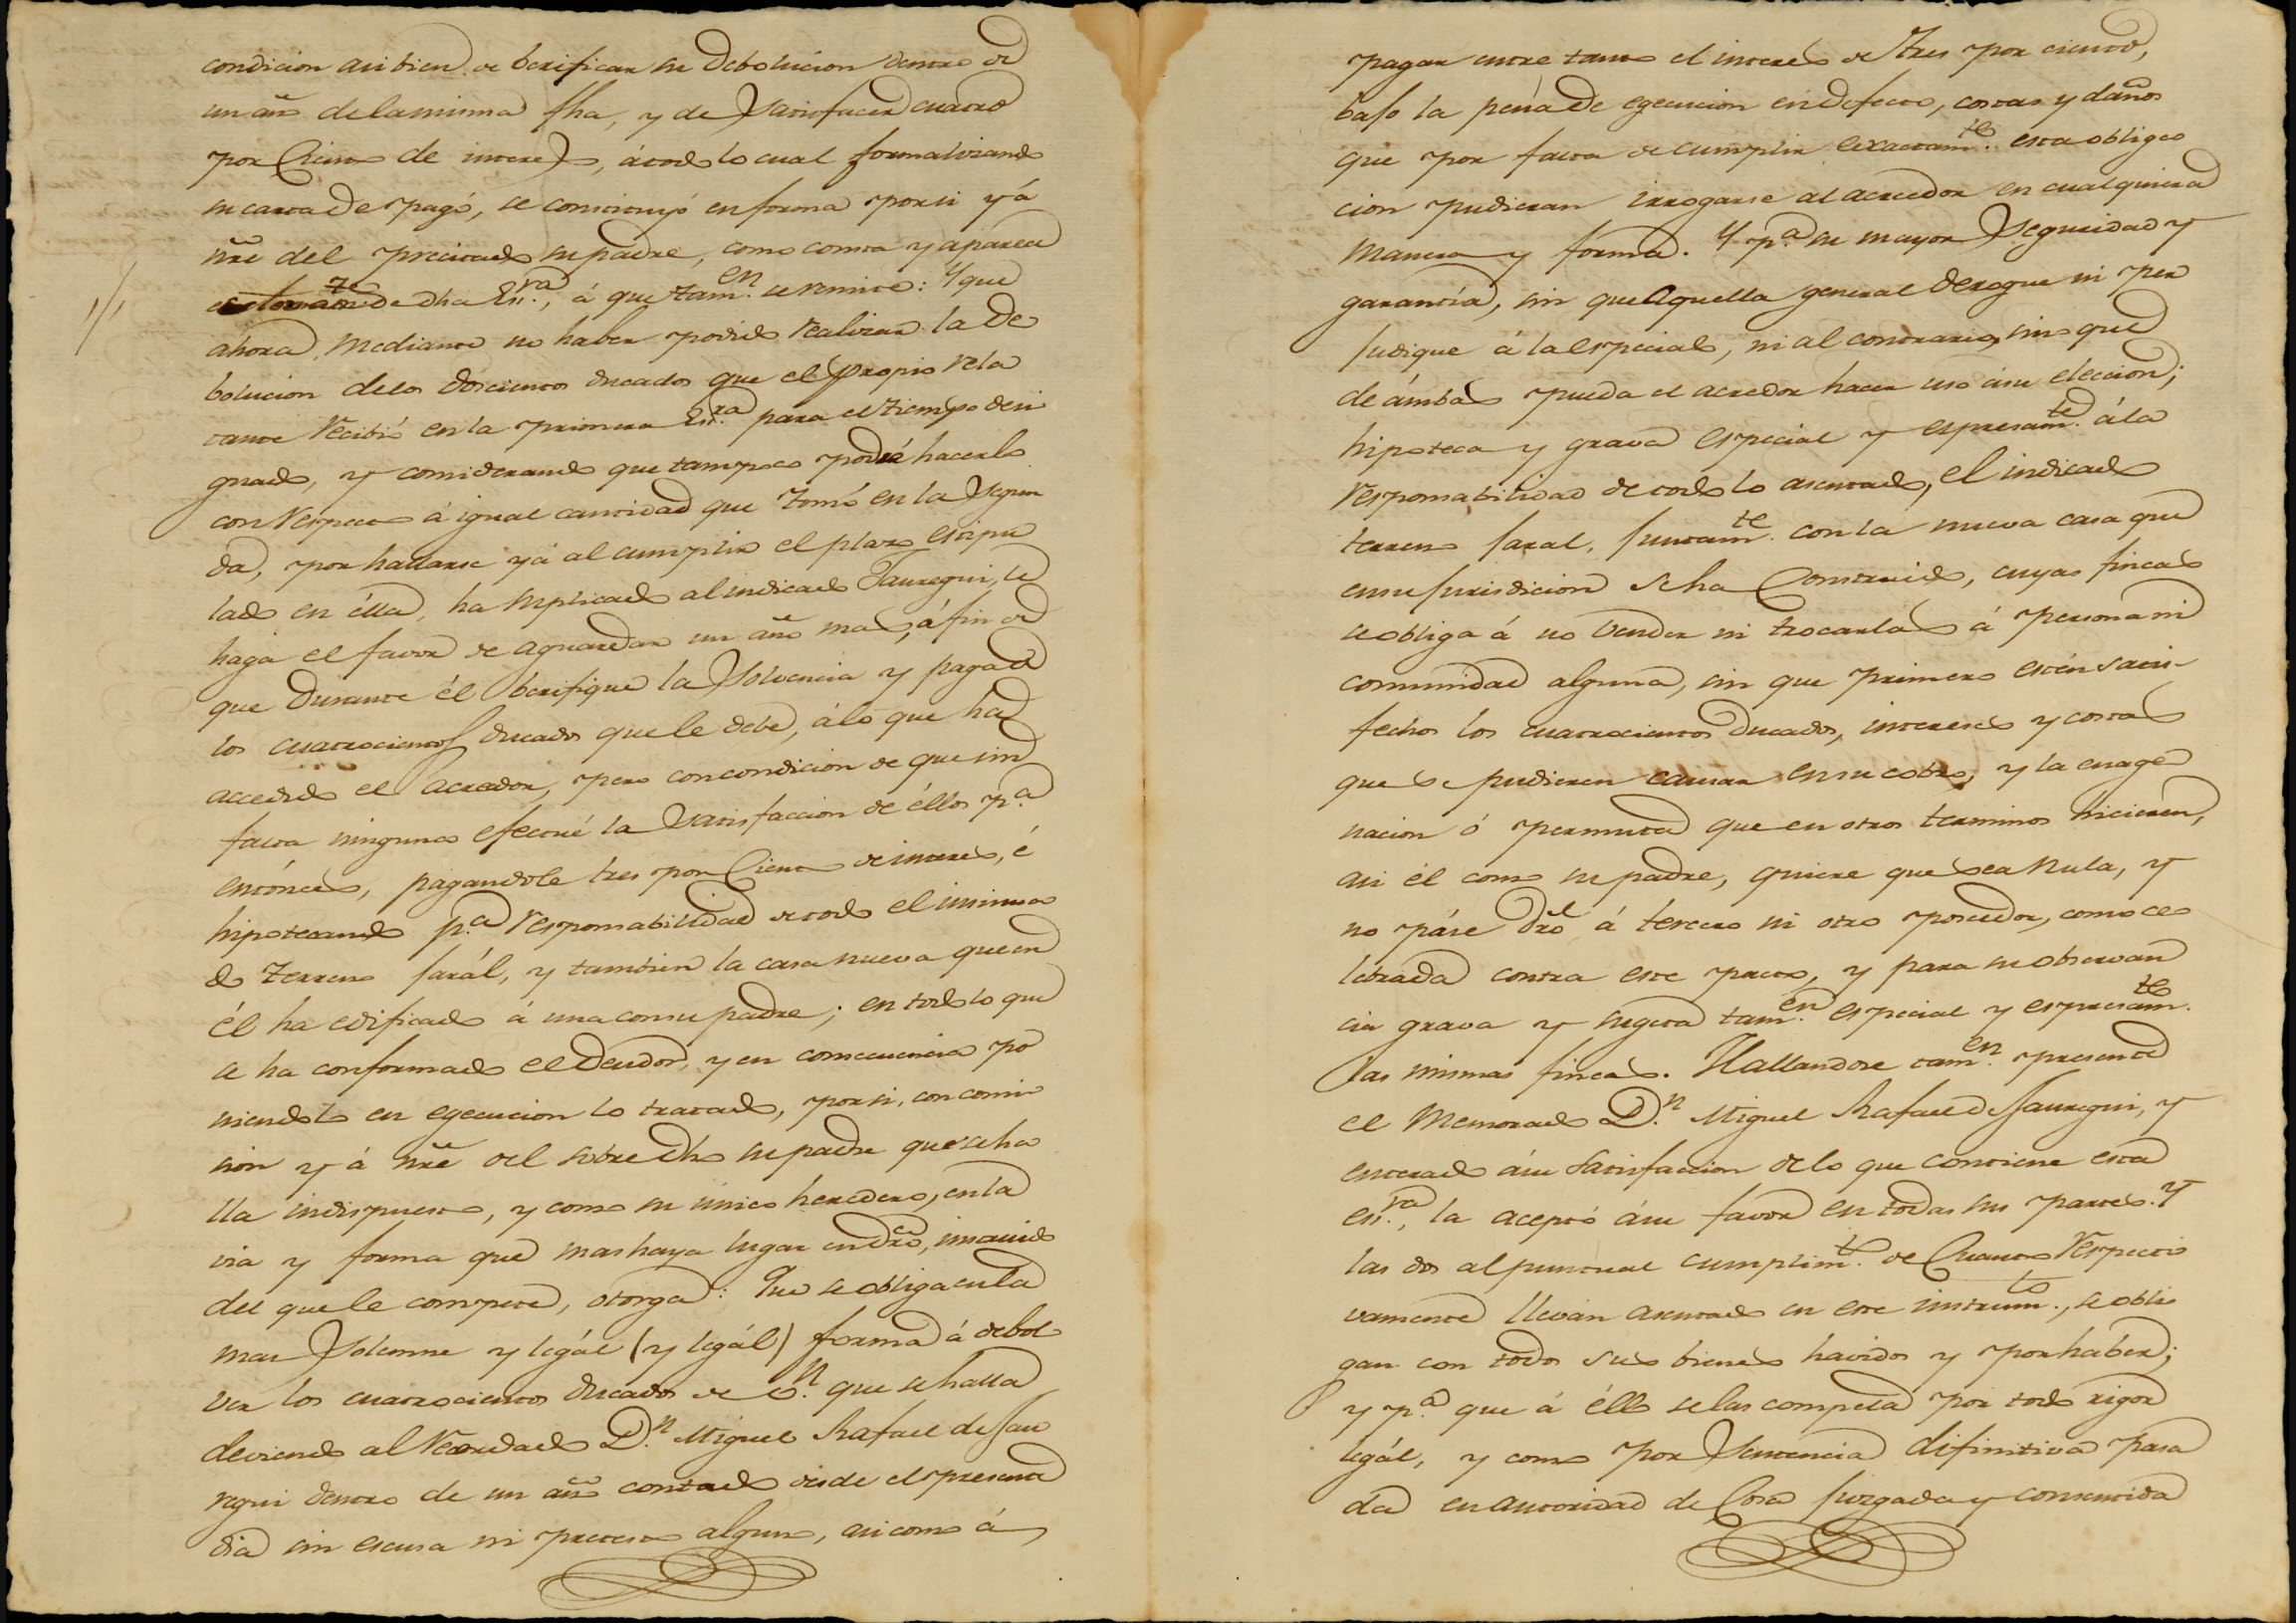 condicion asi bien de berificar su debolucion dentro de
un año de la misma fha, y de satisfacer cuatro
por Ciento de interes, á todo lo cual formalizando
su carta de pagó, se constituyó en forma por si y á
nre del precitado su padre, como consta y aparece
de dha Esra., á que tamen. se remite: Y que
ahora, mediante no haber podido realizar la de
bolucion de los doscientos ducados que el propio rela
tante recibió en la primera Esra. para el tiempo desi
gnado, y considerando que tampoco podrá hacerlo
con respecto á igual cantidad que tomó en la segun
da, por hallarse yá al cumplir el plazo estipu
lado en élla, ha suplicado al indicado Jauregui, le
haga el favor de aguardar un año mas, á fin de
que durante él berifique la solvencia y paga de
los cuatrocientos ducados que le debe, á lo que ha
accedido el acreedor, pero con condicion de que sin
falta ninguna efectué la satisfaccion de éllos pa.
entónces, pagandole tres por Ciento de interes, é
hipotecando pa. responsabilidad de todo el insinua
do terreno jarál, y tambien la casa nueva que en
él ha edificado á una con su padre; en todo lo que
se ha conformado el deudor, y en consecuencia po
niendolo en egecucion lo tratado, por si, con comi
sion y á nre del sobre dho su padre que se ha
lla indispuesto, y como su único heredero, en la
via y forma que mas haya lugar en dro, instruido
del que le compete, otorga: Que se obliga en la
mas solemne y legál (y legál) forma á debol
ver los cuatrocientos ducados de vn. que se halla
deviendo al recordado Dn. Miguel Rafael de Jau
regui dentro de un año contado desde el presente
dia sin escusa ni pretesto alguno, asi como á
pagar entre tanto el interes de tres por ciento,
bajo la pena de egecucion en defecto, costas y daños
que por falta de cumplir exactamte. esta obliga
cion pudieran irrogarse al acreedor en cualquiera
manera y forma. Y pa. su mayor seguridad y
garantía, sin que aquella general derogue ni per
judique á la especial, ni al contrario, sino que
de ámbas pueda el acreedor hacer uso á su eleccion;
hipoteca y grava especial y espresamte. á la
responsabilidad de todo lo asentado, el indicado
terreno jaral, juntamte. con la nueva casa que
en su jurisdicion se ha Construido, cuyas fincas
se obliga á no vender ni trocarlas á persona ni
comunidad alguna, sin que primero estén satis-
fechos los cuatrocientos ducados, intereses y costas
que se pudieren causar en su cobro, y la enage
nacion ó permuta que en otros terminos hicieren,
asi él como su padre, quiere que sea nula, y
no páse dro á tercero ni otro poseedor, como ce
lebrada contra este pacto, y para su observan
cia grava y sugeta tamen. especial y espresamte.
las mismas fincas. Hallandose tamen. presente
el memorado Dn. Miguel Rafael de Jauregui, y
enterado á su satisfaccion de lo que contiene esta
esra., la aceptó á su favor en todas sus partes. Y
las dos al puntual cumplimto. de Cuanto respecti
vamente llevan asentado en este instrumto., se obli
gan con todos sus bienes havidos y por haber;
y pa. que á éllo se las compela por todo rigor
legál, y como por sentencia difinitiva pasa
da en autoridad de Cosa juzgada y consentida